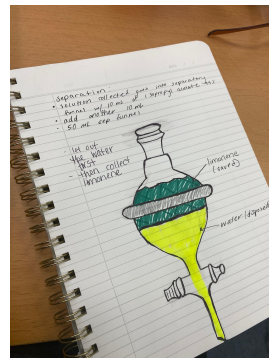 separation
• solution collected goes into separatory
funnel w/ 10 mL of isopropyl acetate
• add another 10 mL
• 50 mL sep funnel
let out
the water
first
then collect
limonene
limonene
(saved)
water